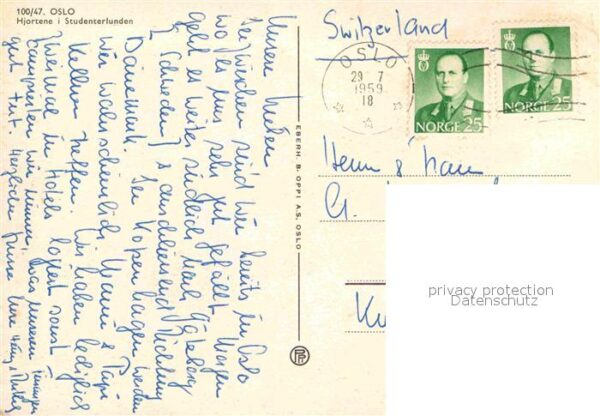 100/47. OSLO
Hjortene i Studenterlunden
Meinen Lieben
Inzwischen sind wir bereits in Oslo
wo es uns sehr gut gefällt. Morgen
geht es weiter südlich nach Göteborg
(Schweden) & anschliessend Richtung
Dänemark. In Kopenhagen werden
wir wahrscheinlich Mami & Papi
Kellner treffen. Wir haben lediglich
zweimal in Hotels logiert sonst
campierten wir immer, was unseren
gut tut. Herzliche Grüsse
EBERH. B. OPPI A.S. OSLO
Switzerland
OSLO
29 7
1959
18
NORGE 25
NORGE 25
Herrn & Frau
G.
privacy protection
Datenschutz